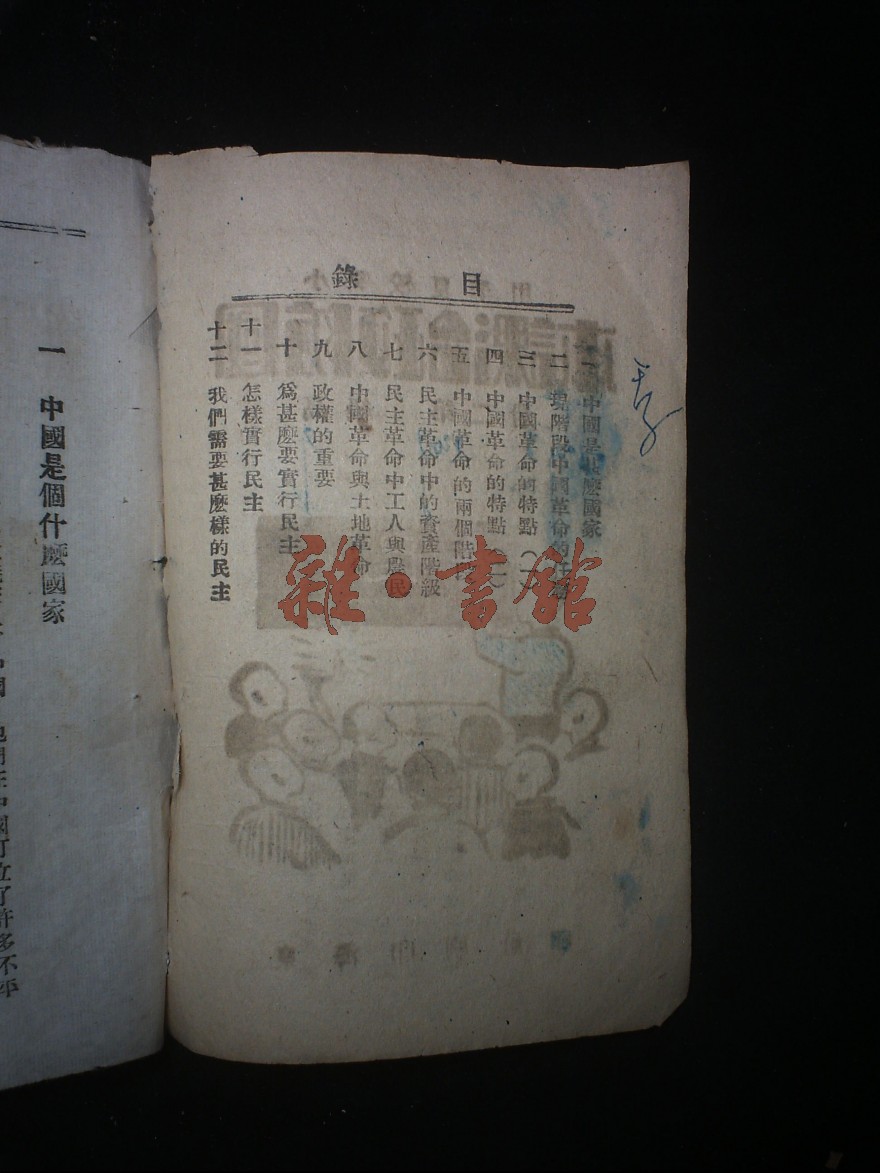 目錄
一 中國是甚麼國家
二 現階段中國革命的任務
三 中國革命的特點（一）
四 中國革命的特點（二）
五 中國革命的兩個階段
六 民主革命中的資產階級
七 民主革命中工人與農民
八 中國革命與土地革命
九 政權的重要
十 爲甚麼要實行民主
十一 怎樣實行民主
十二 我們需要甚麼樣的民主
雜·書館
一 中國是個什麼國家
中國訂立了許多不平